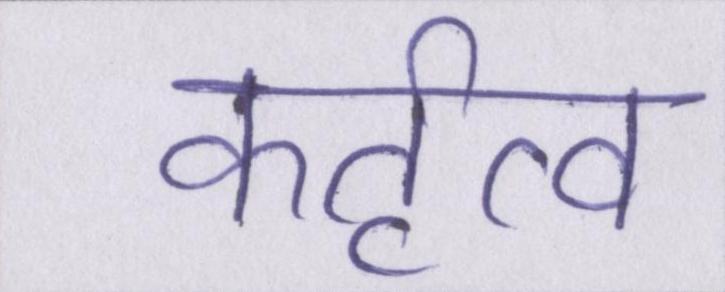 कर्तृत्व